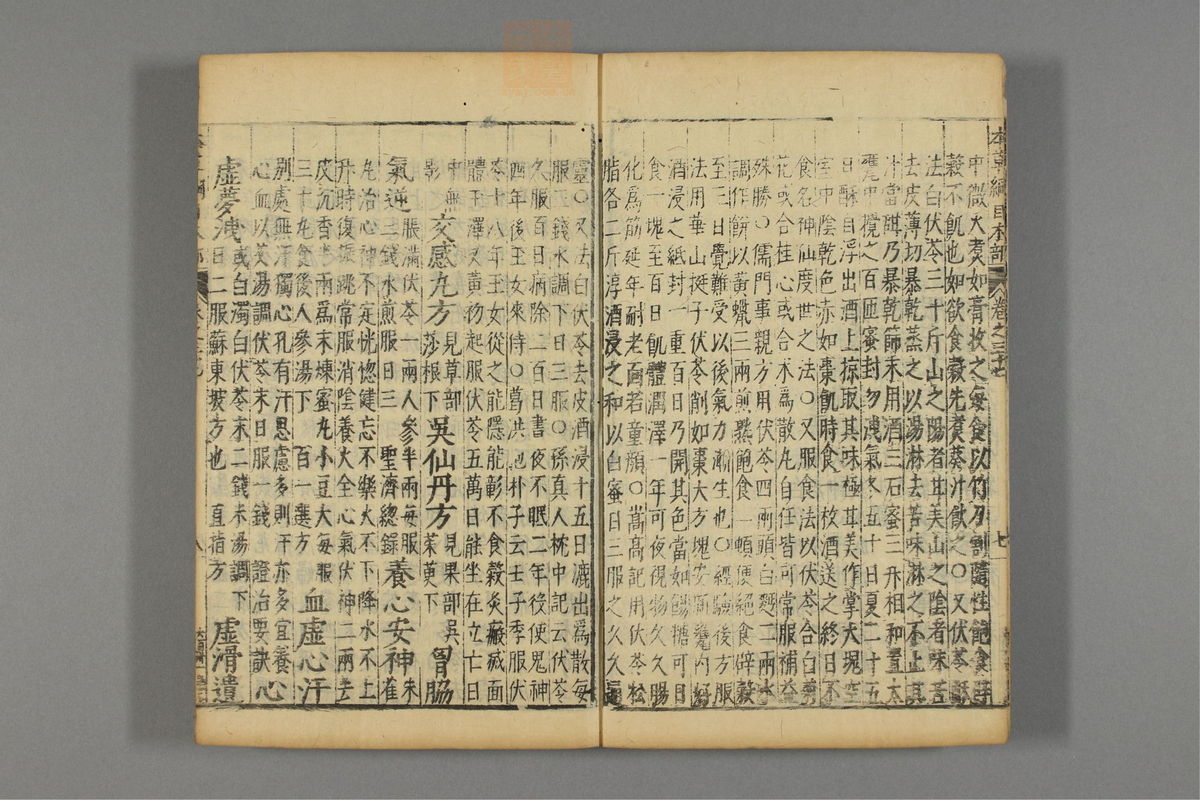 本草綱目木部 卷之三十七 七
中微火煑如膏收之每食以竹刀割隨性飽食辟
穀不飢也如欲食穀先煑葵汁飲之○又伏苓酥
法白伏苓三十斤山之陽者甘美山之陰者味苦
去皮薄切暴乾蒸之以湯淋去苦味淋之不止其
汁當甜乃暴乾篩末用酒三石蜜三升相和置大
甕中攪之百匝蜜封勿洩氣冬五十日夏二十五
日酥自浮出酒上掠取其味極甘美作掌大塊空
室中陰乾色赤如棗飢時食一枚酒送之終日不
食名神仙度世之法○又服食法以伏苓合白菊
花或合桂心或合朮為散丸自任皆可常服補益
殊勝○儒門事親方用伏苓四兩頭白麪二兩水
調作餅以黃蠟三兩煎熟飽食一頓便絕食辟穀
至三日覺難受以後氣力漸生也○經驗後方服
法用華山挺子伏苓削如棗大方塊安新甕內好
酒浸之紙封一重百日乃開其色當如餳糖可日
食一塊至百日肌體潤澤一年可夜視物久久腸
化為筋延年耐老面若童顏○嵩高記用伏苓松
脂各二斤淳酒浸之和以白蜜日三服之久久通
靈○又法白伏苓去皮酒浸十五日漉出為散每
服三錢水調下日三服○孫真人枕中記云伏苓
久服百日病除二百日晝夜不眠二年後使鬼神
四年後玉女來侍○葛洪抱朴子云壬子季服伏
苓十八年玉女從之能隱能彰不食穀灸瘢滅面
體玉澤又黃初起服伏苓五萬日能坐在立亡日
中無影 交感丸方見草部莎根下 吳仙丹方見果部吳茱萸下 胷脇
氣逆脹滿伏苓一兩人參半兩每服三錢水煎服日三 聖濟總錄 養心安神朱雀
丸治心神不定恍惚健忘不樂火不下降水不上
升時復振跳常服消陰養火全心氣伏神二兩去
皮沉香半兩為末煉蜜丸小豆大每服
三十丸食後人參湯下 百一選方 血虛心汗
別處無汗獨心孔有汗思慮多則汗亦多宜養
心血以艾湯調伏苓末日服一錢 證治要訣 心
虛夢洩或白濁白伏苓末二錢米湯調下日二服蘇東坡方也 直指方 虛滑遺